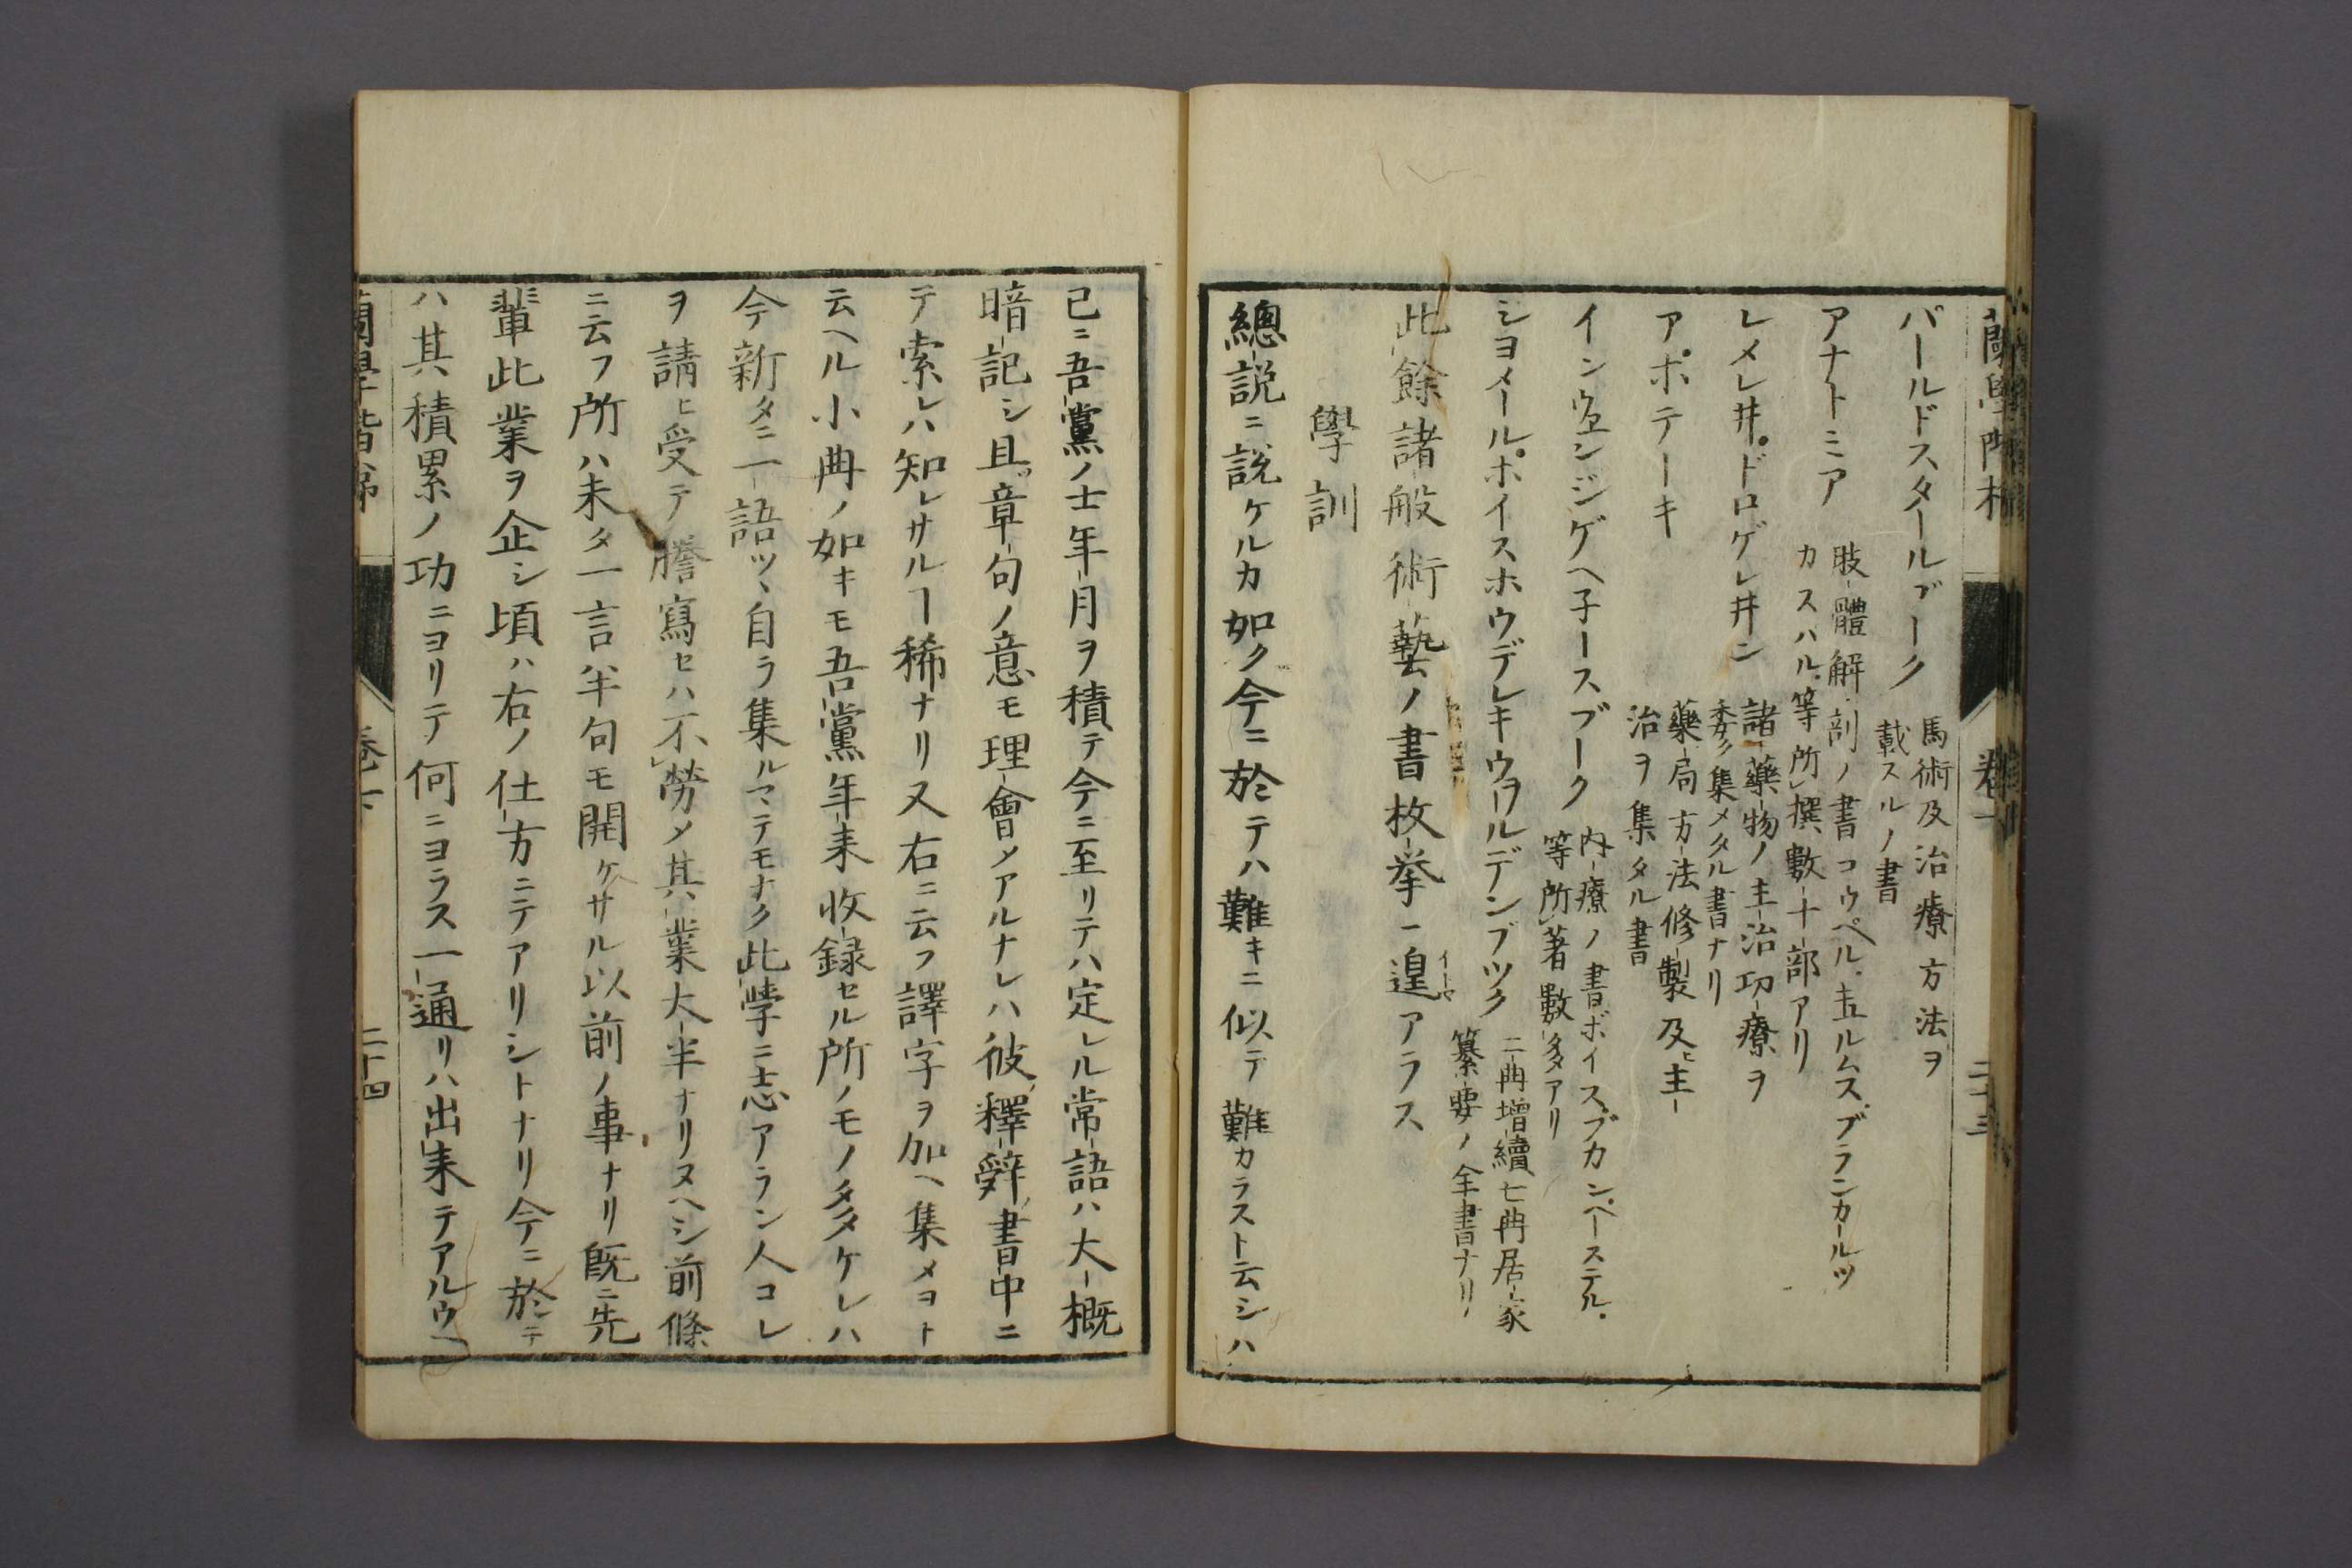 パールドスタールブーク 馬術及治療方法ヲ
載スルノ書
アナトミア 肢體解剖ノ書コウペル．ブランカールツ
カスハル．等所撰數十部アリ
レメレ井．ドロゲレ井ン 諸藥物ノ主治功療ヲ
委ク集メタル書ナリ
アポテーキ 藥局方法修製及ヒ主
治ヲ集タル書
インウェンジゲヘ子ースブーク 内療ノ書ボイス．ブカン．ペーステル．
等所著數多アリ
ショメール．ホイスホウデレキウヲールデンブック 二冊増續七冊居家
纂要ノ全書ナリ
此餘諸般術藝ノ書枚挙ニ遑アラス
學訓
總説ニ説ケルカ如ク今ニ於テハ難キニ似テ難カラスト云シハ
已ニ吾黨ノ士年月ヲ積テ今ニ至リテハ定レル常語ハ大概
暗記シ且ツ章句ノ意モ理會メアルナレハ彼ノ釋辭書中ニ
テ索レハ知レサルヿ稀ナリ又右ニ云フ譯字ヲ加ヘ集メヨト
云ヘル小冊ノ如キモ吾黨年来收録セル所ノモノ多ケレハ
今新タニ一語ツヽ自ラ集ルマテモナク此學ニ志アラン人コレ
ヲ請ヒ受テ謄寫セハ不勞メ其業大半ナリヌヘシ前條
ニ云フ所ハ未タ一言半句モ開ケサル以前ノ事ナリ既ニ先
輩此業ヲ企シ頃ハ右ノ仕方ニテアリシトナリ今ニ於テ
ハ其積累ノ功ニヨリテ何ニヨラス一通リハ出来テアルウヘ
蘭學階梯 巻下 二十四